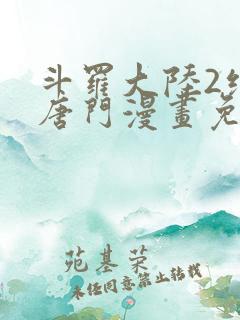 斗羅大陸2
唐門漫畫免
苑基荣
未经同意禁止转载